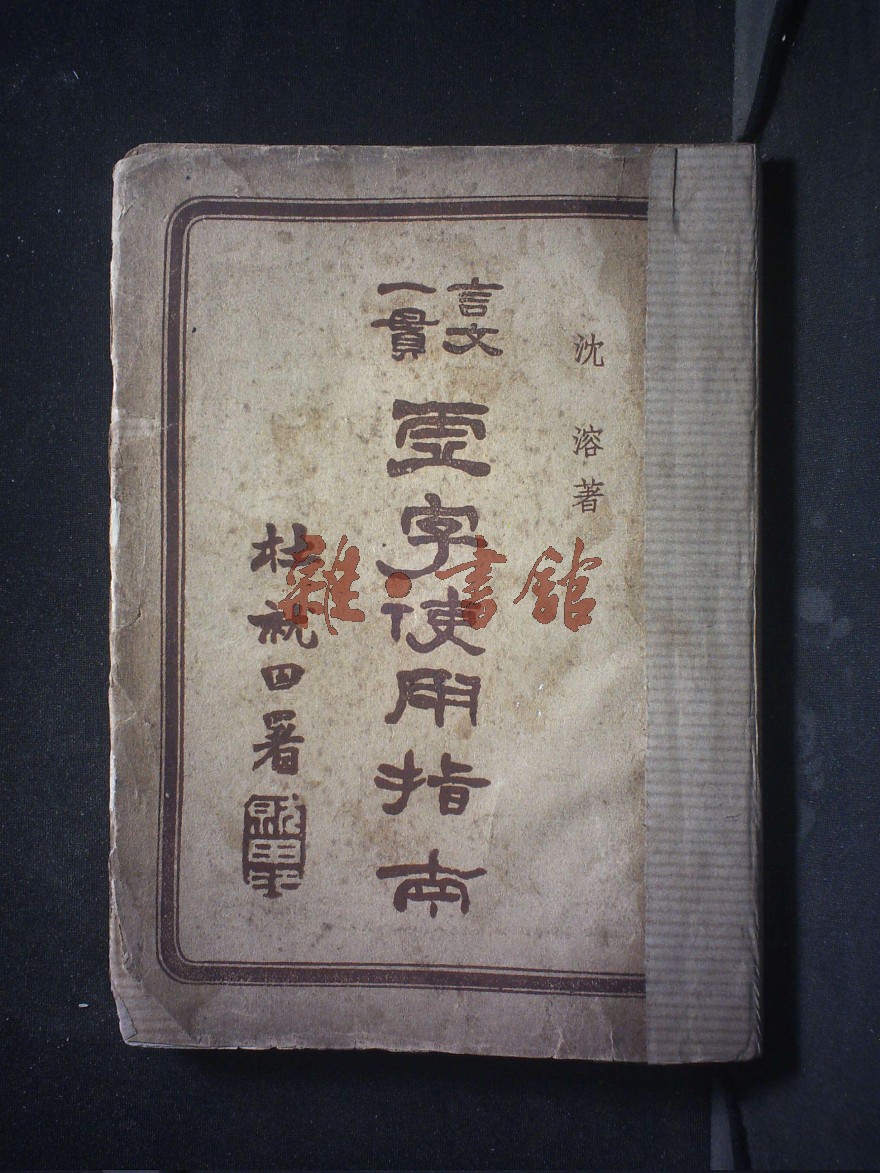 沈溶著
言文
一貫
虛字使用指南
杜就田署
雜·書館